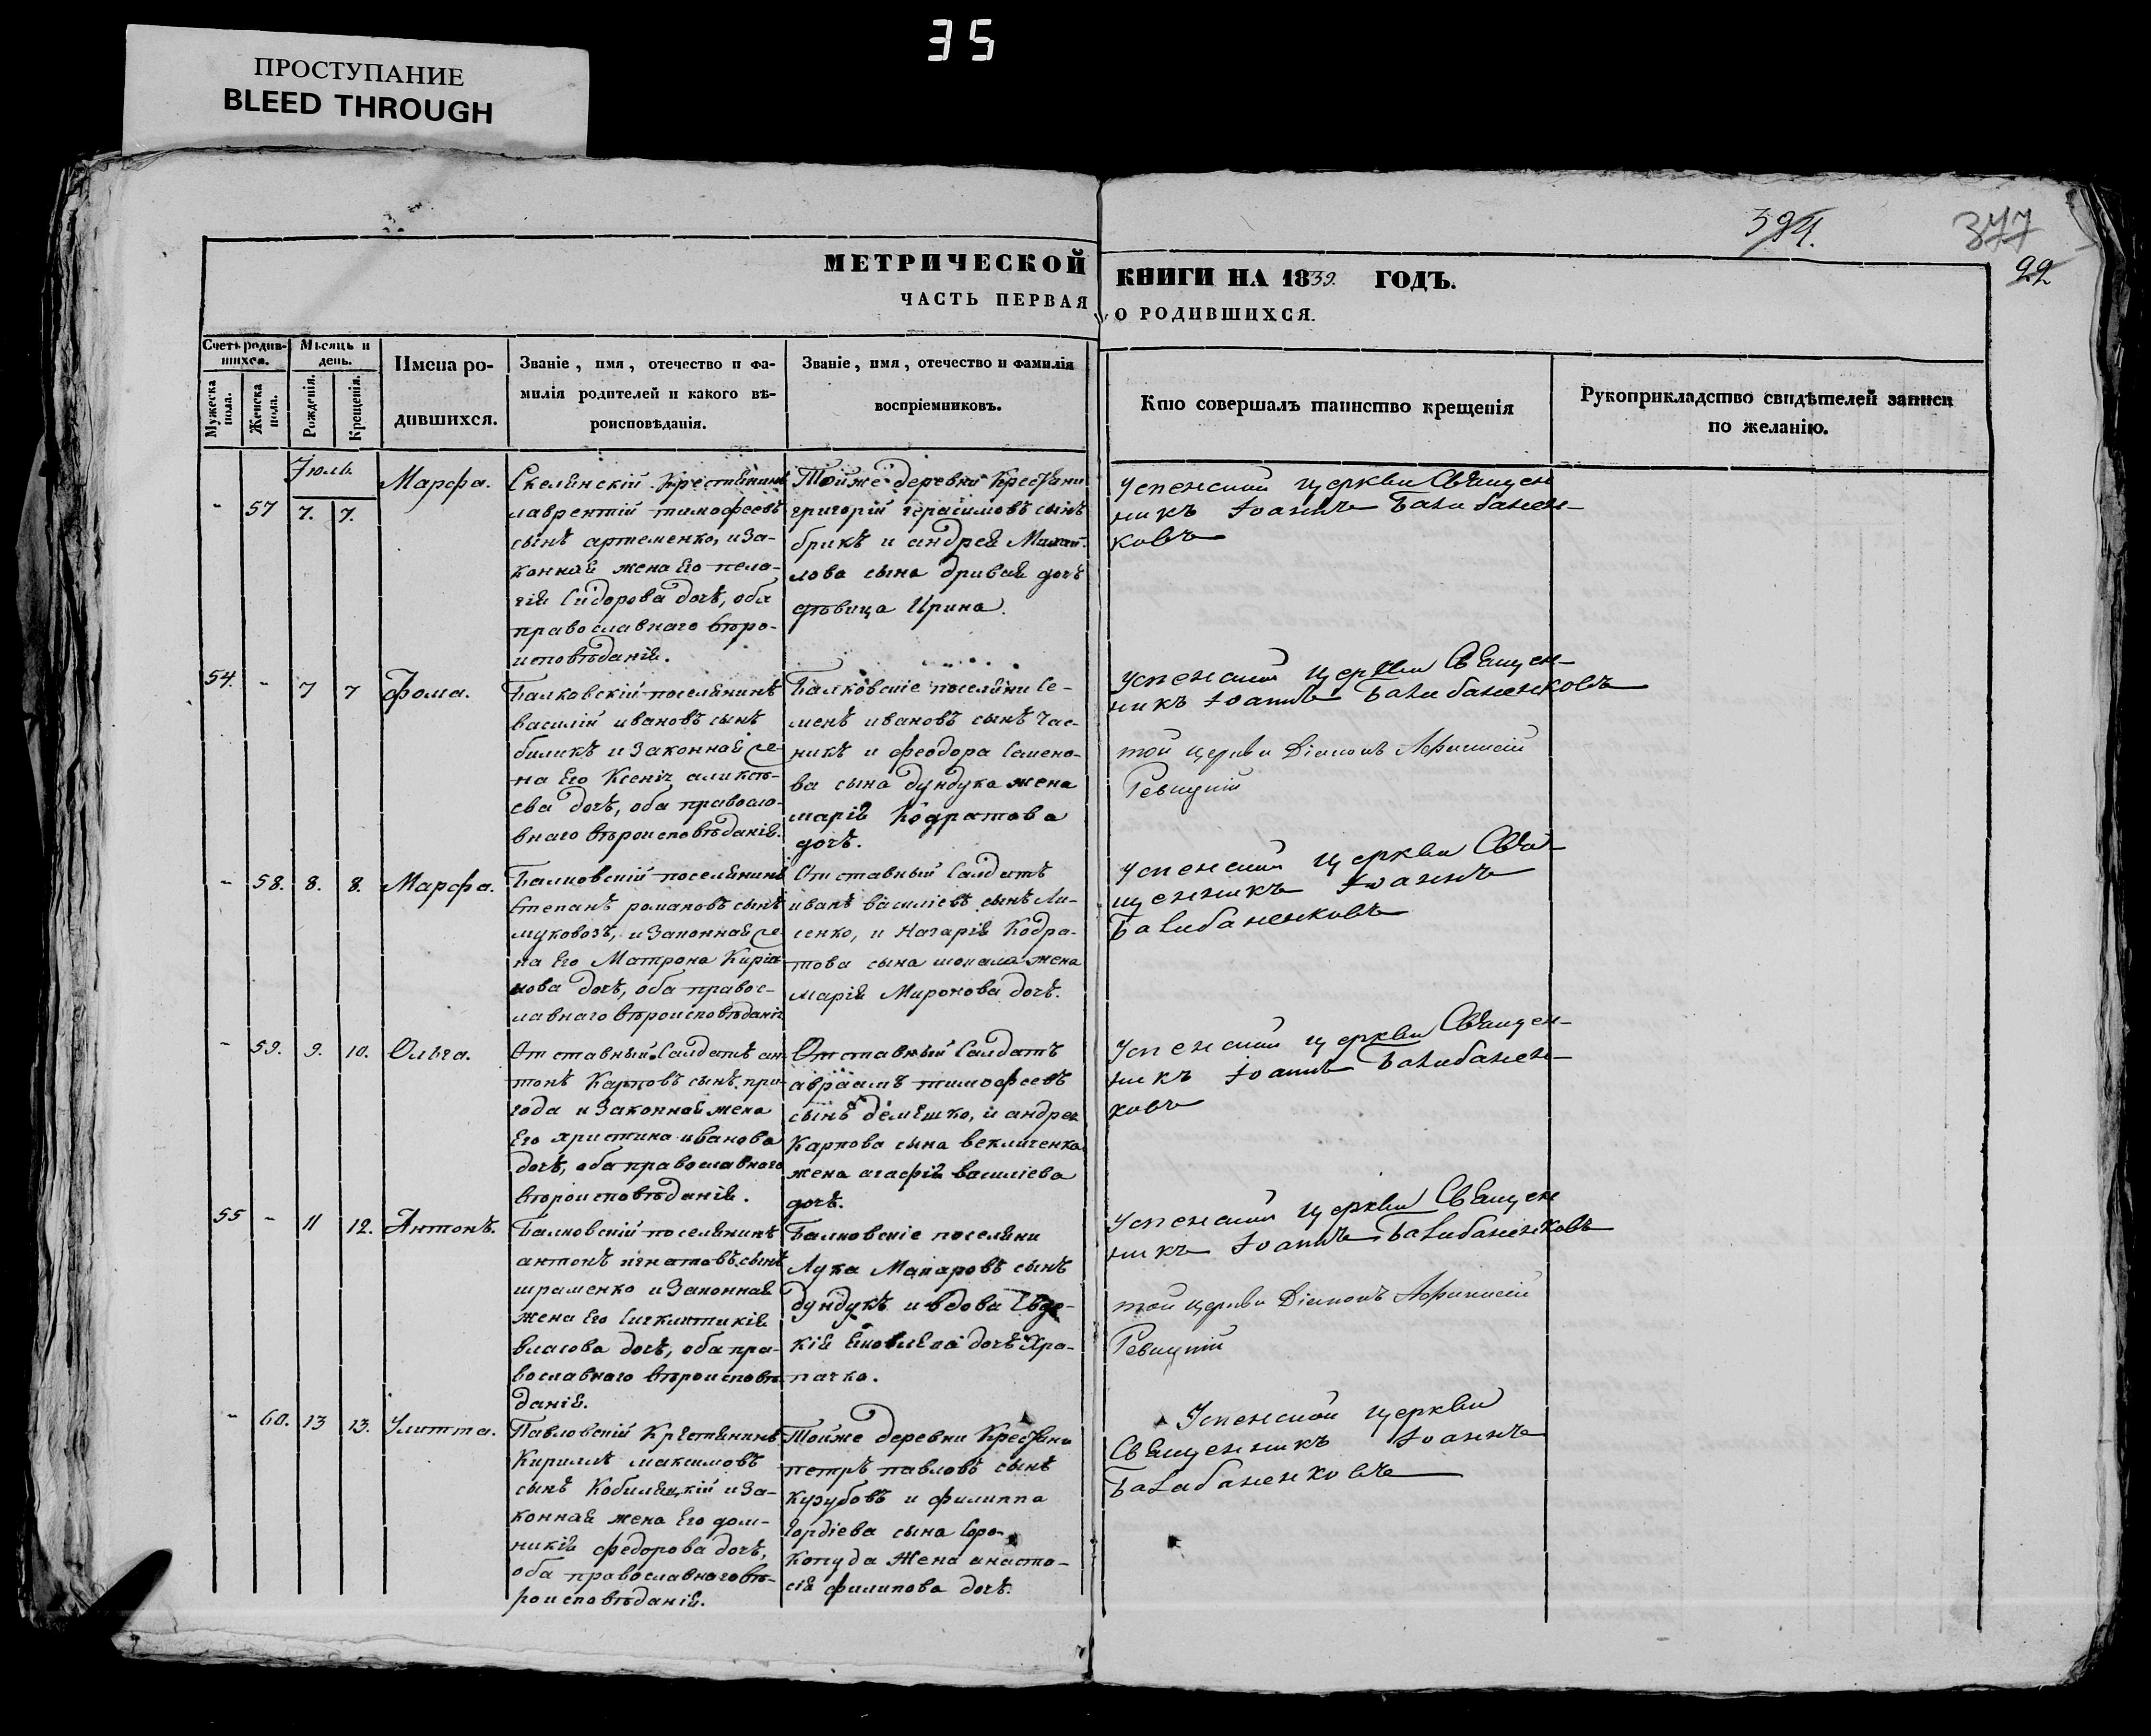 35
ПРОСТУПАНИЕ
BLEED THROUGH
394.
377
22
МЕТРИЧЕСКОЙ КНИГИ НА 1839. ГОДЪ.
ЧАСТЬ ПЕРВАЯ О РОДИВШИХСЯ.
Счетъ родив-
шихся.
Мужеска пола.
Женска пола.
Мѣсяцъ и
день.
Рожденія.
Крещенія.
Имена ро-
дившихся.
Званіе, имя, отечество и фа-
милія родителей и какого вѣ-
роисповѣданія.
Званіе, имя, отечество и фамилія
воспріемниковъ.
Кто совершалъ таинство крещенія
Рукоприкладство свидѣтелей записи
по желанію.
Іюль
- 57 7. 7.
Марфа.
Скелянскій Крестянинъ
лаврентій тимофеевъ
сынъ артеменко, и за-
конная жена Его пела-
гія Сидорова дочъ, оба
православнаго вѣро-
исповѣданія.
Тойже деревни Крестяни
григорій герасимовъ сынъ
брикъ и андрея
лова сына дочъ
дѣвица Ирина.
Успенской церкви Священ
никъ Іоаннъ Балабанен-
ковъ
54. - 7 7
Фома.
Балковскій поселянинъ
василій ивановъ сынъ
биликъ и законная же-
на Его Ксенія аликсѣ-
ева дочъ, оба правосла-
внаго вѣроисповѣданія.
Балковские поселяни Се-
менъ ивановъ сынъ Час-
никъ и феодора Семено-
ва сына дундука жена
марія Кодратова
дочъ.
Успенской церкви Священ-
никъ Іоаннъ Балабаненковъ
той церкви Діаконъ Афанасій
Ревуцкій
- 58. 8. 8.
Марфа.
Балковскій поселянинъ
Степанъ романовъ сынъ
муковозъ, и законная же-
на Его Матрона Кирия-
нова дочъ, оба правос-
лавнаго вѣроисповѣданія
Отставный Салдатъ
иванъ василіевъ сынъ Ли-
сенко, и Назарія Кодра-
това сына жена
марія Миронова дочъ.
Успенской церкви Свя-
щенникъ Іоаннъ
Балабаненковъ
- 59. 9. 10.
Ольга.
Отставный Салдатъ ан-
тонъ Карповъ сынъ при-
года и законная жена
Его христина иванова
дочъ, оба православнаго
вѣроисповѣданія.
Отставный Салдатъ
авраамъ тимофеевъ
сынъ демешко, и андрея
Карпова сына векличенка
жена агафія василіева
дочъ.
Успенской церкви Священ-
никъ Іоаннъ Балабанен-
ковъ
55 - 11 12.
Антонъ.
Балковскій поселянинъ
антонъ игнатовъ сынъ
шраменко и законная
жена Его Сигклитикія
власова дочъ, оба пра-
вославнаго вѣроисповѣ-
данія.
Балковские поселяни
Лука Макаровъ сынъ
дундукъ и вдова Евдо-
кія яковлева дочъ Хра-
пачка.
Успенской церкви Священ
никъ Іоаннъ Балабаненковъ
той церкви Діаконъ Афанасій
Ревуцкій
- 60. 13 13.
Улитта.
Павловскій Крестянинъ
Кириллъ максимовъ
сынъ Кобиляцкій и за-
конная жена Его дом-
никія федорова дочъ,
оба православнаго вѣ-
роисповѣданія.
Тойже деревни Крестяни
петръ павловъ сынъ
Кузубовъ и филиппа
Гордіева сына Соро-
копуда жена анаста-
сія филипова дочъ.
Успенской церкви
Священникъ Іоаннъ
Балабаненковъ